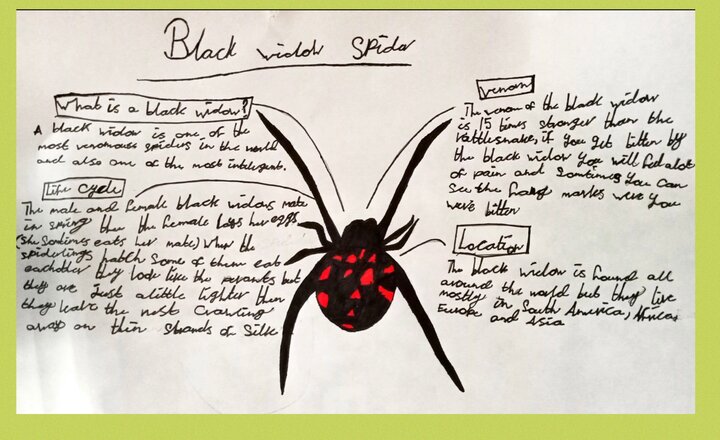 Black widow Spider
What is a black widow?
A black widow is one of the
most venomous spiders in the world
and also one of the most intelegent.
Life cycle
The male and female black widows mate
in spring then the female lays her eggs
(she somtimes eats her mate) when the
spiderlings hatch some of them eat
eachother they look like the perants but
they are Just a little lighter then
they leave the nest Crawling
away on thin strands of silk
venom
The venom of the black widow
is 15 times stronger than the
rattlesnake, if you get bitten by
the black widow you will feel alot
of pain and somtimes you can
see the fang markes were you
were bitten
Location
The black widow is found all
around the world but they live
mostly in South America, Africa,
Europe and Asia